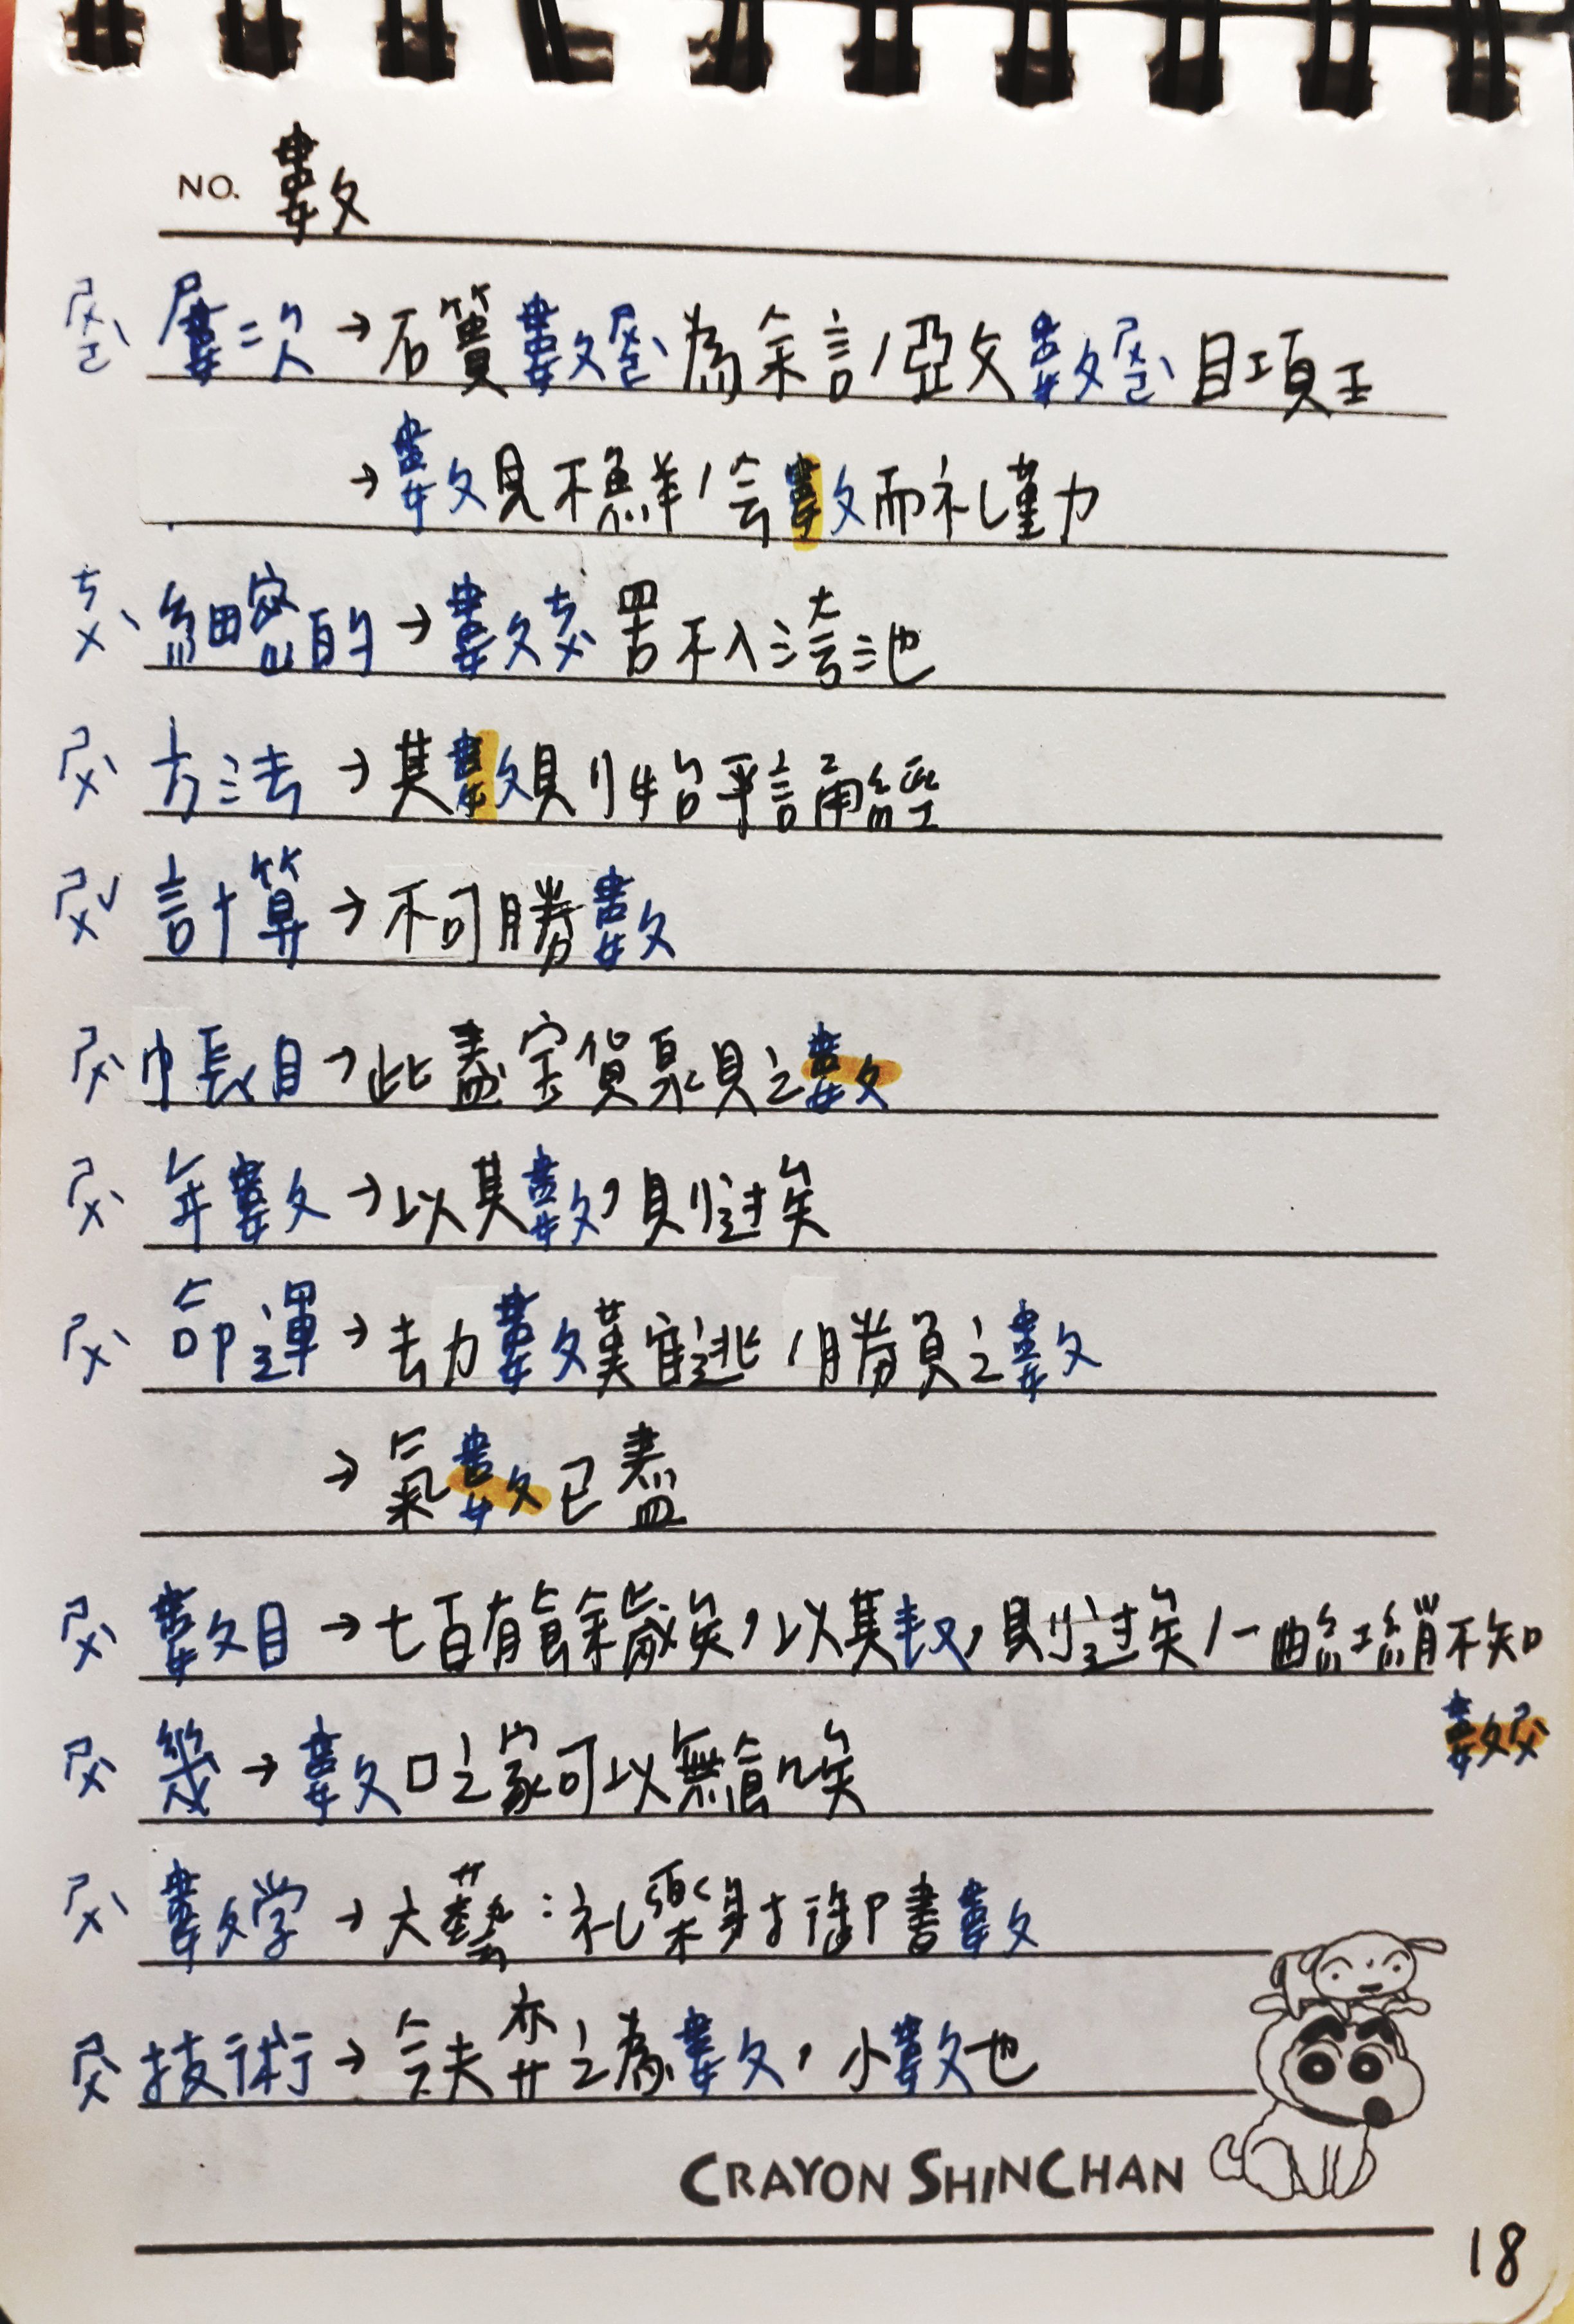 NO. 數
ㄕㄨㄛˋ 屢次→石簣數ㄕㄨㄛˋ為余言/亞父數ㄕㄨㄛˋ目項王
→數見不鮮/会數而礼勤
ㄘㄨˋ 細密的→數ㄘㄨˋ罟不入洿池
ㄕㄨˋ 方法→其數則始乎誦經
ㄕㄨˇ 計算→不可勝數
ㄕㄨˋ 帳目→此蓋宝貨泉貝之數
ㄕㄨˋ 年數→以其數,則過矣
ㄕㄨˋ 命運→去力數莫宜逃/勝負之數
→氣數已盡
ㄕㄨˋ 數目→七百有餘歲矣,以其数,則過矣/一曲紅綃不知
數ㄕㄨˋ
ㄕㄨˋ 幾→數口之家可以無飢矣
ㄕㄨˋ 數学→六藝:礼樂射御書數
ㄕㄨˋ 技術→今夫弈之為數,小數也
CRAYON SHINCHAN
18